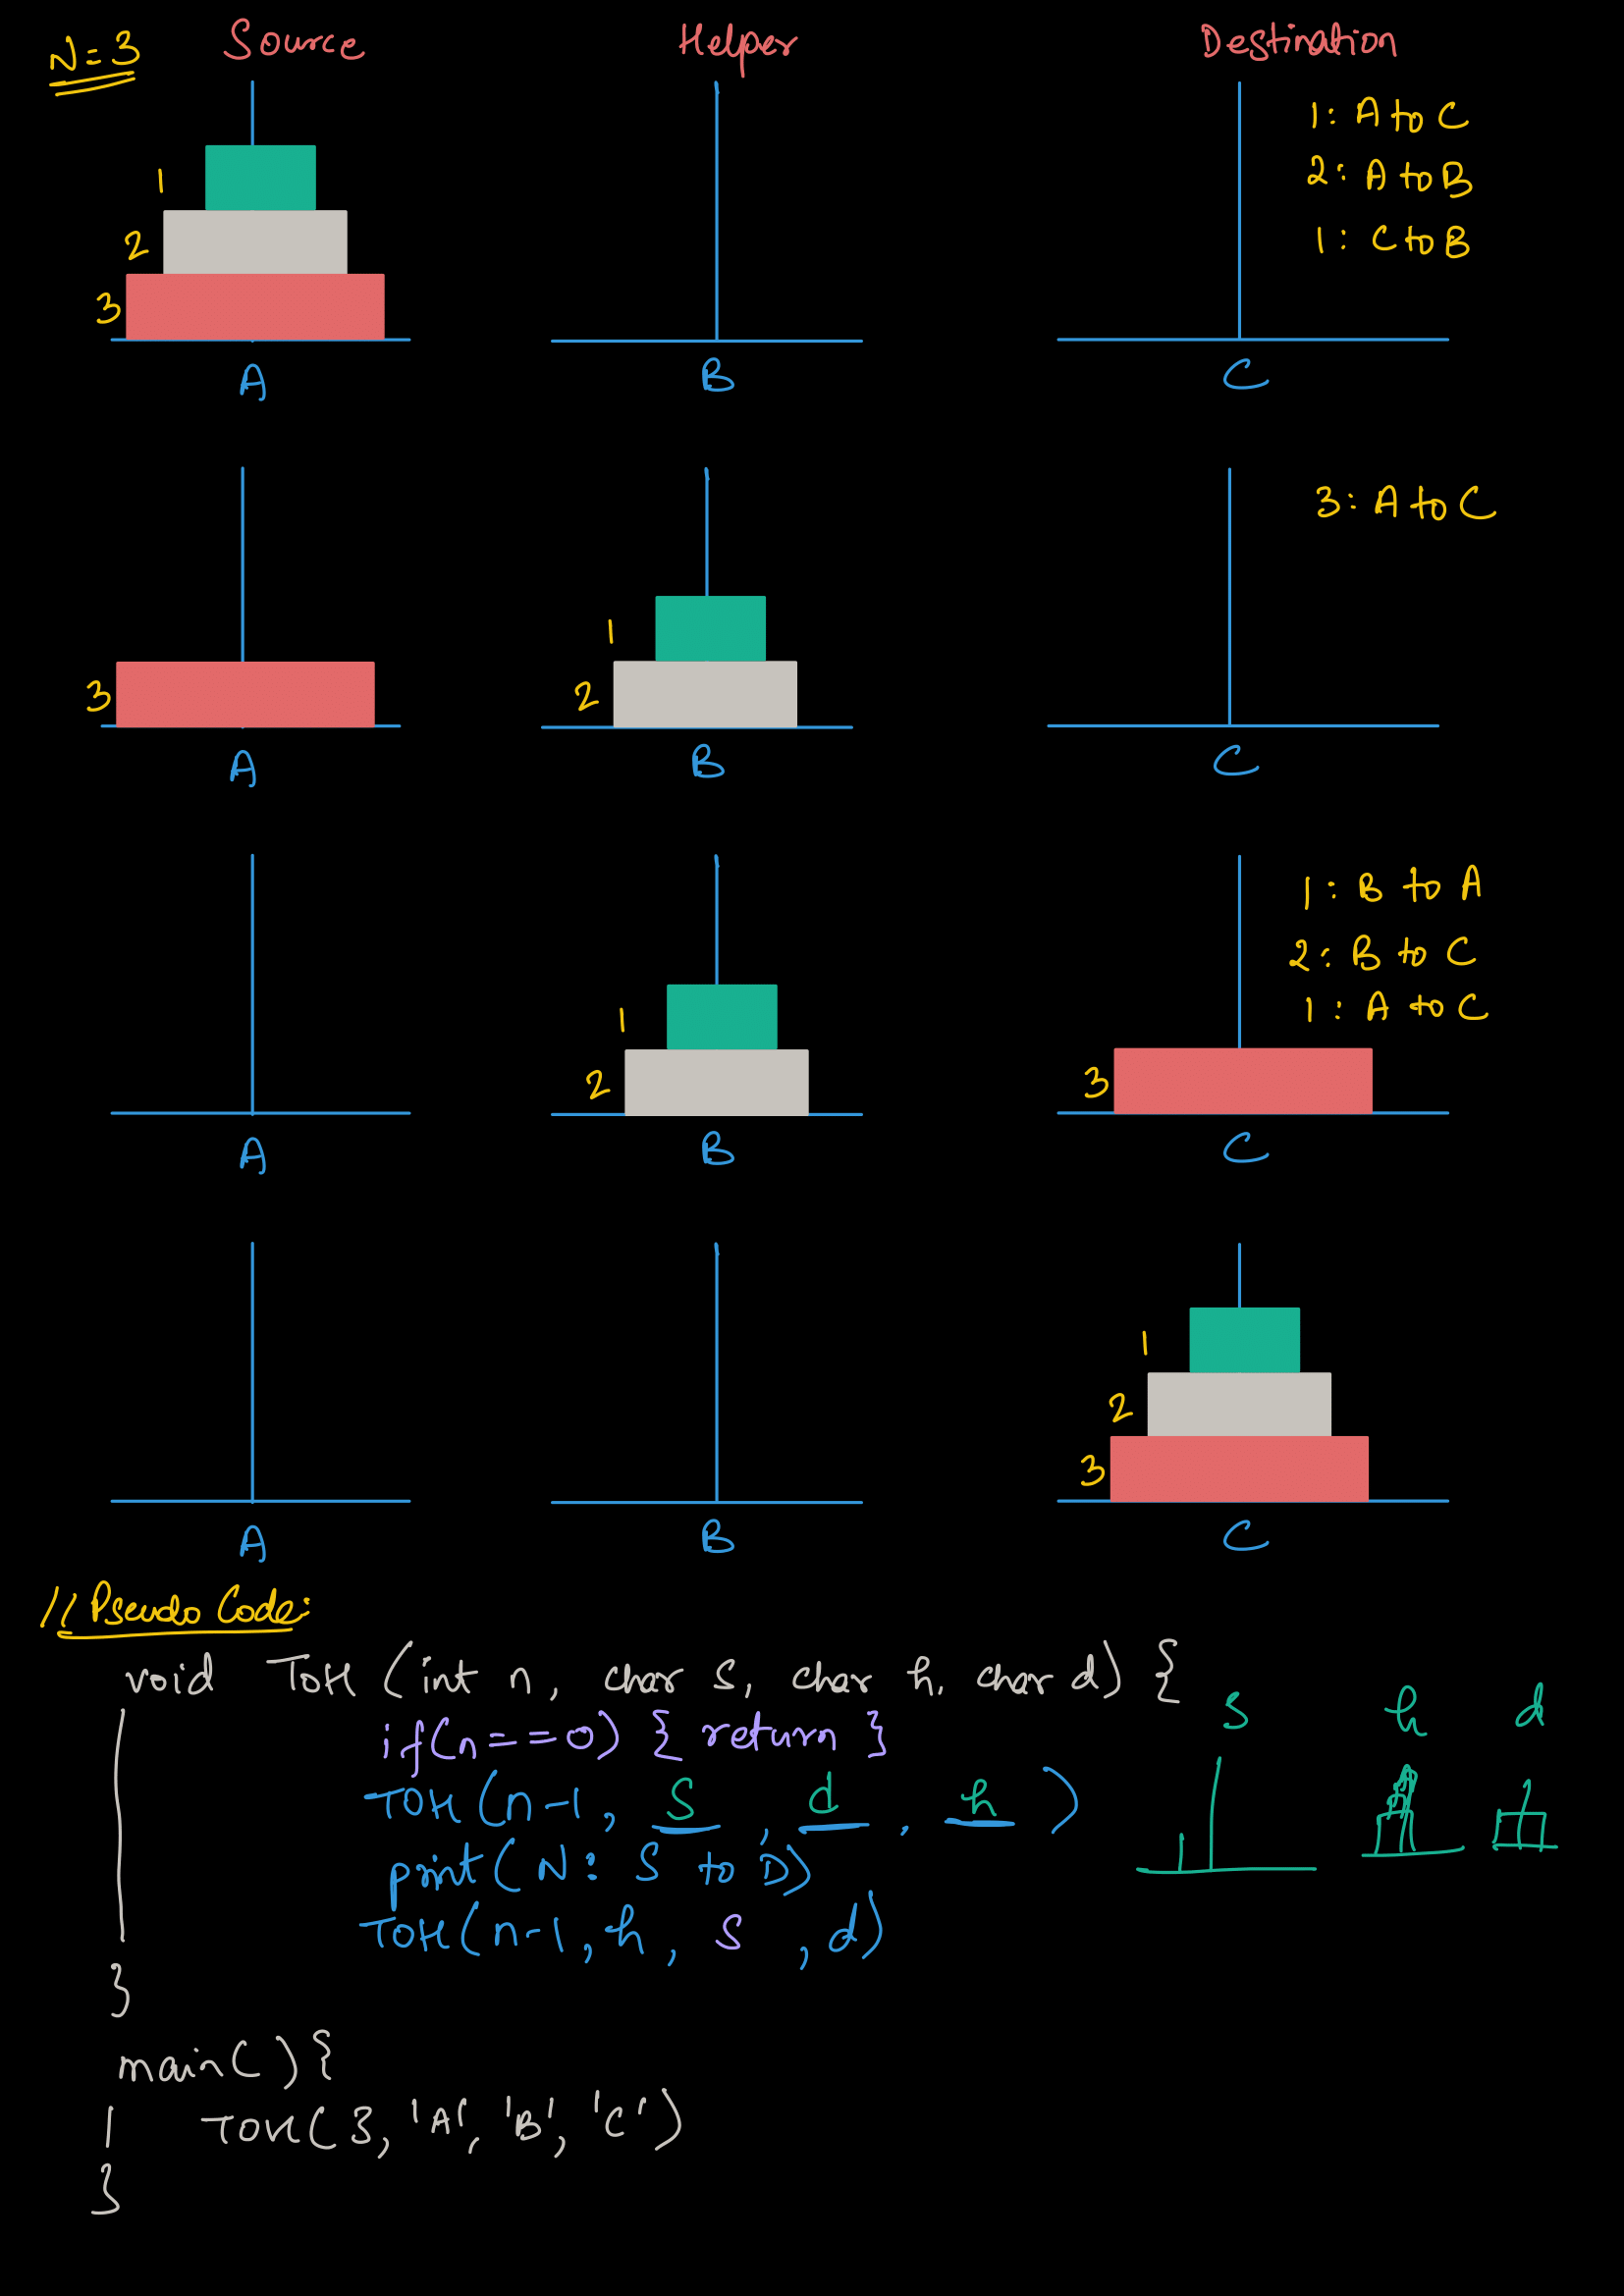 N=3 Source Helper Destination
1: A to C
2: A to B
1: C to B
1
2
3
A B C
3: A to C
1
3 2
A B C
1: B to A
2: B to C
1: A to C
1
2 3
A B C
1
2
3
A B C
// Pseudo Code:
void TOH (int n, char s, char h, char d) {
s h d
if(n==0) { return }
TOH(n-1, S, d, h)
print(N: S to D)
TOH(n-1, h, s, d)
}
main() {
TOH(3, 'A', 'B', 'C')
}